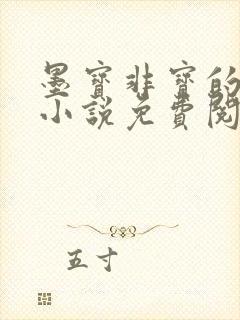 墨寶非寶的
小說免費閱
五寸